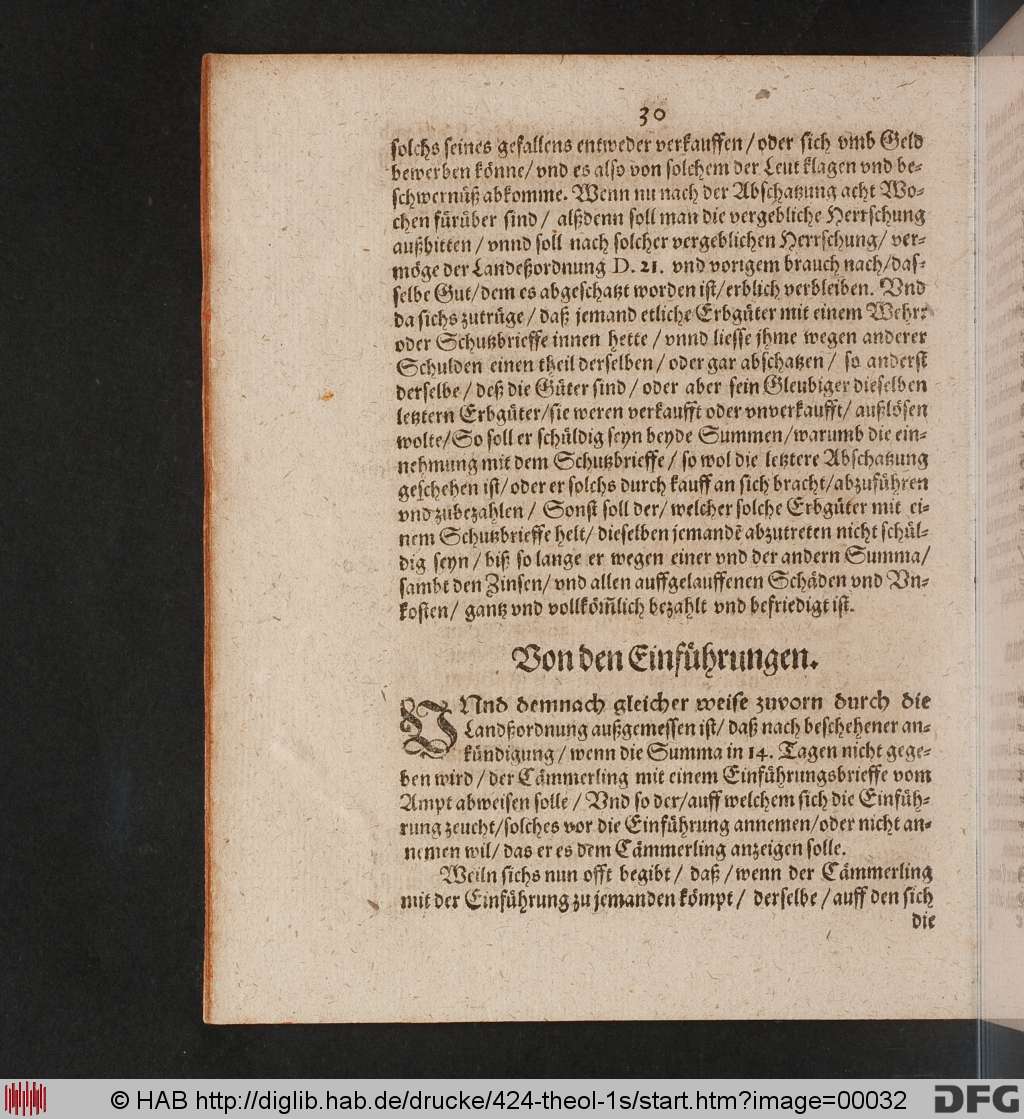 30
solchs seines gefallens entweder verkauffen / oder sich vmb Geld
bewerben könne / vnd es also von solchem der Leut klagen vnd be-
schwernüß abkomme. Wenn nu nach der Abschatzung acht Wo-
chen fürüber sind / alßdenn soll man die vergebliche Herrschung
außbitten / vnnd soll nach solcher vergeblichen Herrschung / ver-
möge der Landeßordnung D. 21. vnd vorigem brauch nach / das-
selbe Gut / dem es abgeschatzt worden ist / erblich verbleiben. Vnd
da sichs zutrüge / daß jemand etliche Erbgüter mit einem Wehr:
oder Schutzbrieffe innen hette / vnnd liesse jhme wegen anderer
Schulden einen theil derselben / oder gar abschatzen / so anderst
derselbe / deß die Güter sind / oder aber sein Gleubiger dieselben
letztern Erbgüter / sie weren verkaufft oder vnverkaufft / außlösen
wolte / So soll er schüldig seyn beyde Summen / warumb die ein-
nehmung mit dem Schutzbrieffe / so wol die letztere Abschatzung
geschehen ist / oder er solchs durch kauff an sich bracht / abzuführen
vnd zubezahlen / Sonst soll der / welcher solche Erbgüter mit ei-
nem Schutzbrieffe helt / dieselben jemandẽ abzutreten nicht schül-
dig seyn / biß so lange er wegen einer vnd der andern Summa /
sambt den Zinsen / vnd allen auffgelauffenen Schäden vnd Vn-
kosten / gantz vnd vollköm̃lich bezahlt vnd befriedigt ist.
Von den Einführungen.
VNnd demnach gleicher weise zuvorn durch die
Landßordnung außgemessen ist / daß nach beschehener an-
kündigung / wenn die Summa in 14. Tagen nicht gege-
ben wird / der Cämmerling mit einem Einführungsbrieffe vom
Ampt abweisen solle / Vnd so der / auff welchem sich die Einfüh-
rung zeucht / solches vor die Einführung annemen / oder nicht an-
nemen wil / das er es dem Cämmerling anzeigen solle.
Weiln sichs nun offt begibt / daß / wenn der Cämmerling
mit der Einführung zu jemanden kömpt / derselbe / auff den sich
die
© HAB http://diglib.hab.de/drucke/424-theol-1s/start.htm?image=00032
DFG